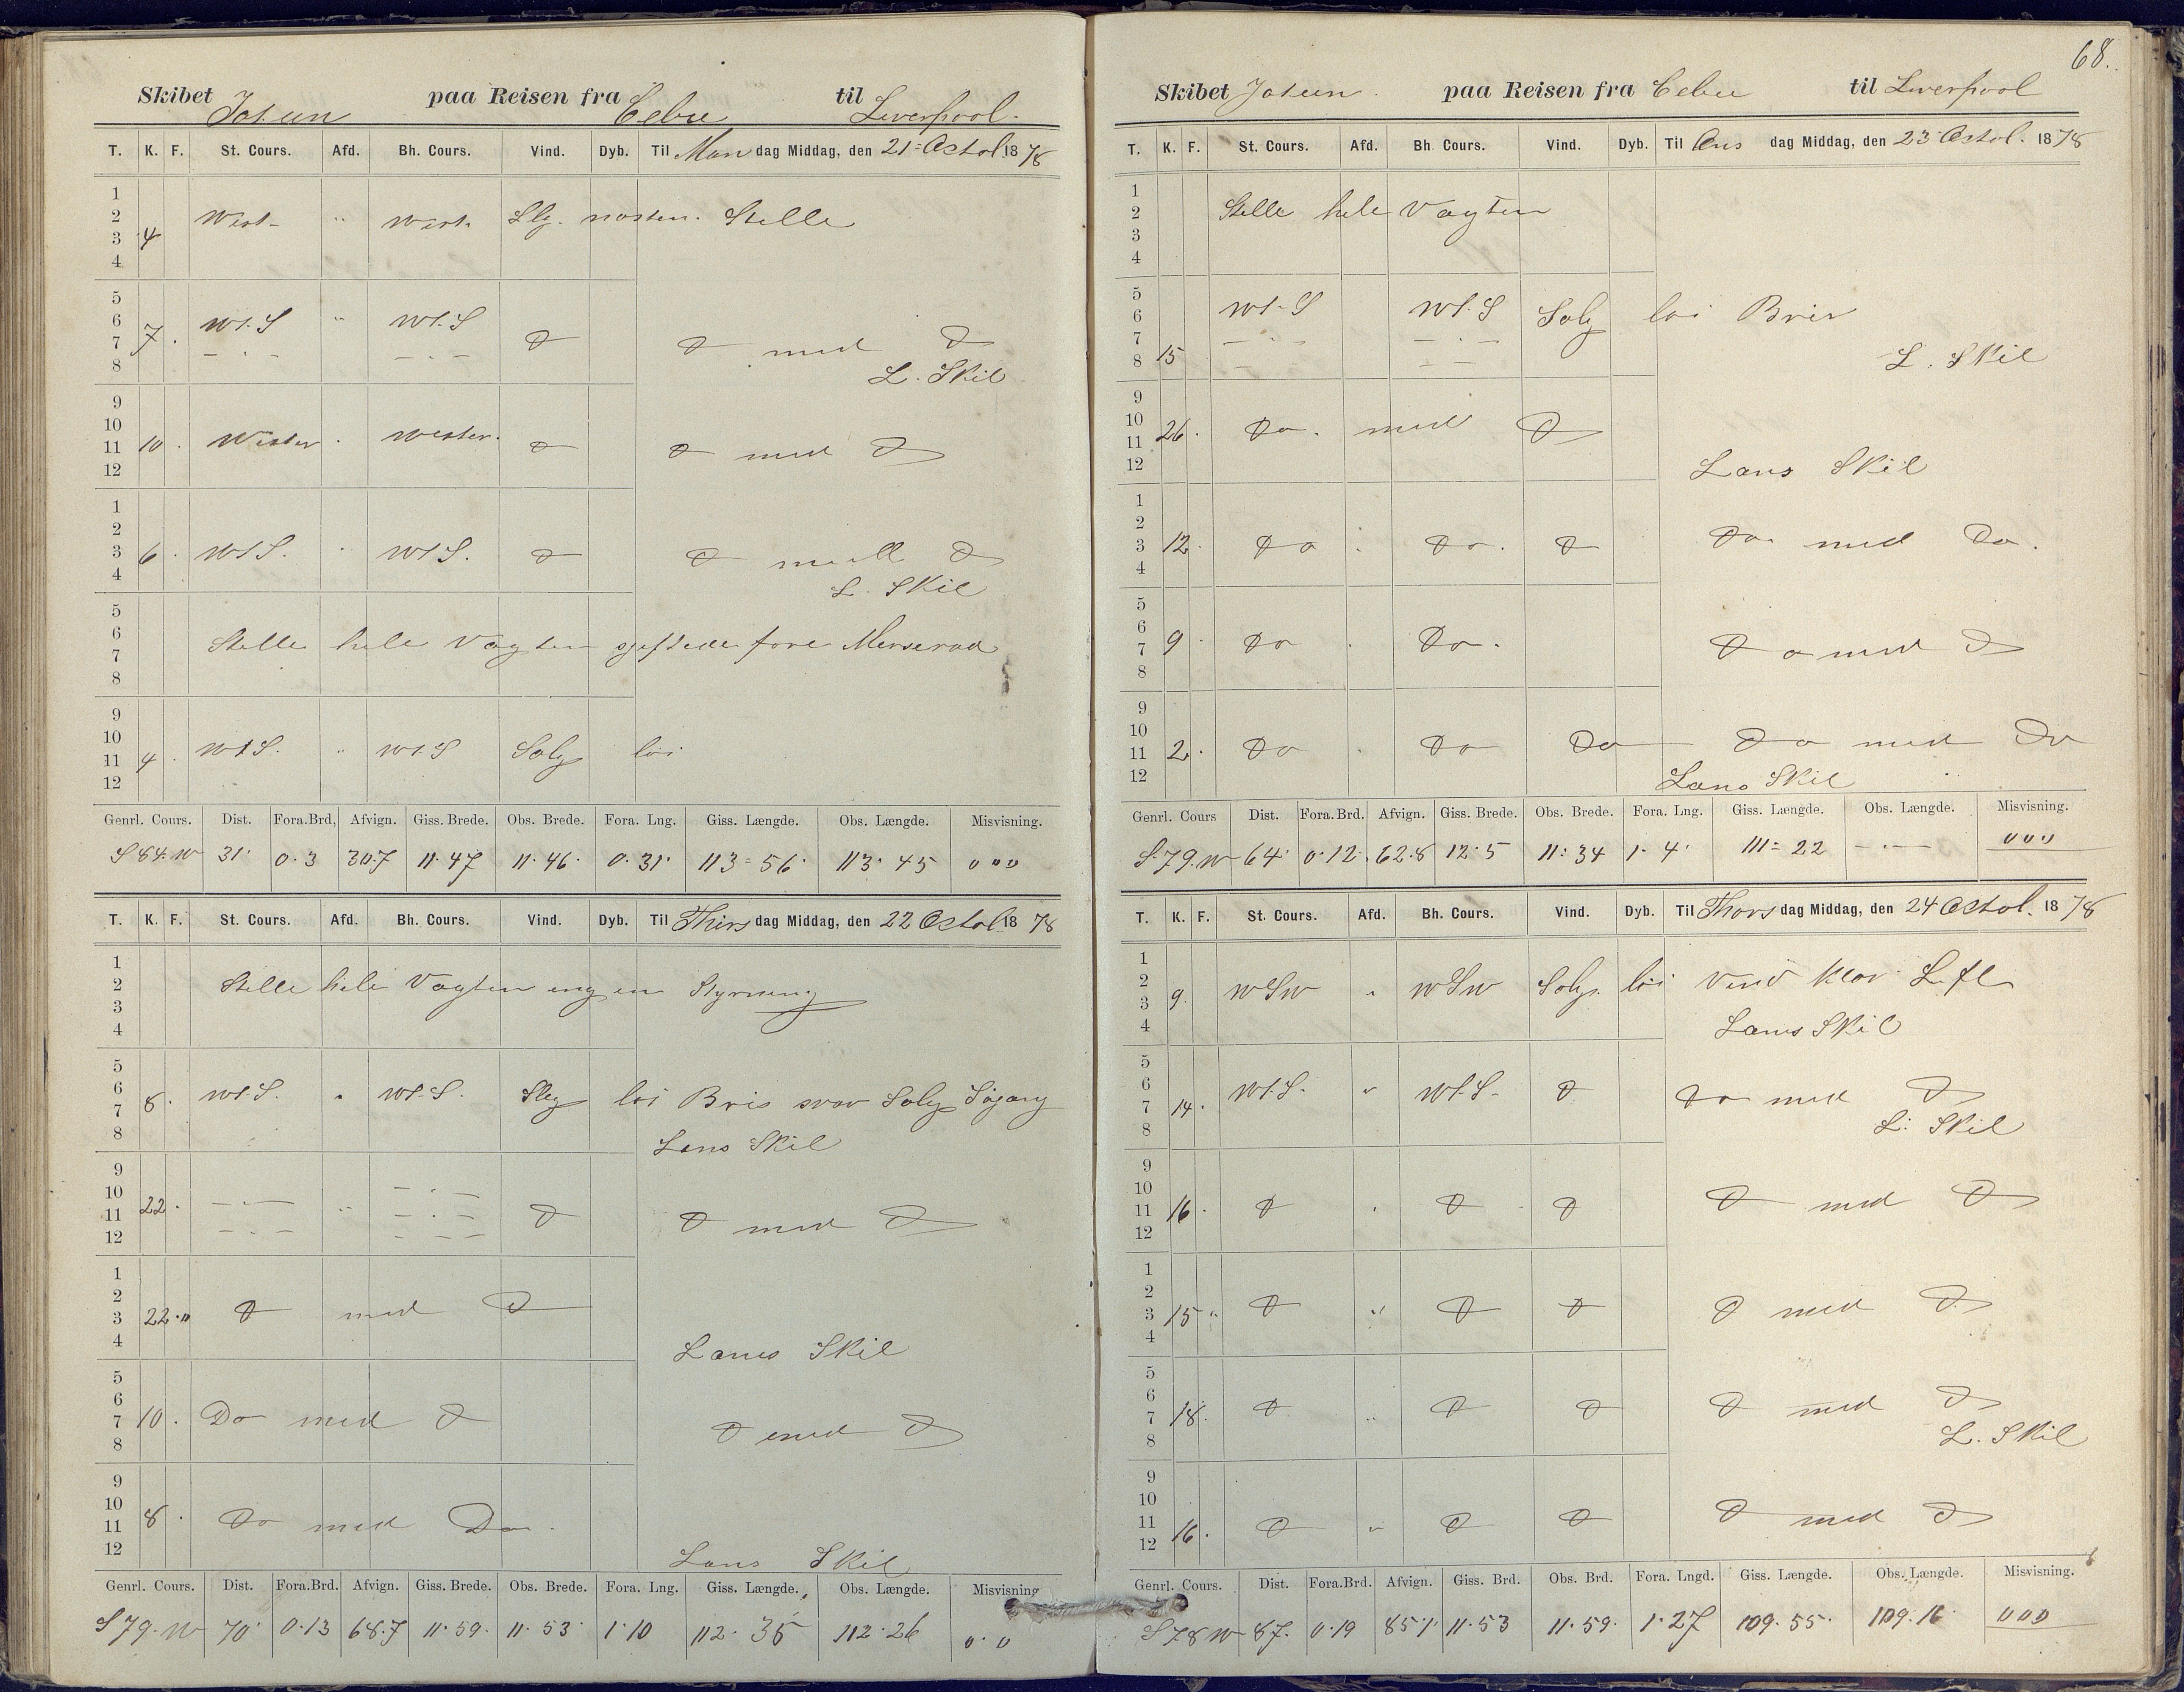 Skibet Jotun paa Reisen fra Cebu til Liverpool.
T. K. F. St. Cours. Afd. Bh. Cours. Vind. Dyb. Til Man dag Middag, den 21 = Octob 18 78
1
2 West " West. Slg. næsten. Stille
3 4
4
5
6 WtS " WtS
7 7. — . — — . — D D med D
8 L. Skil
9
10
11 10. Wester . wester. D D med D
12
1
2
3 6. WtS. . WtS. D D med D
4 L. Skil
5
6 Stille hele Vagten
7
8
9
10
11 4. WtS. " WtS Solg løi
12
Genrl. Cours. Dist. Fora.Brd, Afvign. Giss. Brede. Obs. Brede. Fora. Lng. Giss. Længde. Obs. Længde. Misvisning.
S 84. W 31. 0.3 30.7 11.47 11.46. 0.31. 113=56. 113.45 000
T. K. F. St. Cours. Afd. Bh. Cours. Vind. Dyb. Til Thirs dag Middag, den 22 Octob 18 78
1
2 Stille hele Vagten ingen Styrning
3
4
5
6 WtS. " WtS. Slg løi Bris svær Solg Søgang
7 8.
8 Lans Skil
9
10 22. — . — " — . —
11 — . — D D med D
12 — . — — . —
1
2
3 22." D med D
4 Lans Skil
5
6
7 10. Do med D D med D
8
9
10
11 8. Do med Do.
12 Lans Skil
Genrl. Cours. Dist. Fora.Brd. Afvign. Giss. Brede. Obs. Brede. Fora. Lng. Giss. Længde. Obs. Længde. Misvisning
S 79. W 70. 0.13 68.7 11.59. 11.53. 1.10 112.35 112.26 0.0
68.
Skibet Jotun. paa Reisen fra Cebu til Liverpool
T. K. F. St. Cours. Afd. Bh. Cours. Vind. Dyb. Til Ons dag Middag, den 23 Octob. 18 78
1
2 Stille hele Vagten
3
4
5
6 Wt-S WtS Solg løi Bris
7 — . — — . —
8 15 L. Skil
9
10
11 26. Do. med D
12 Lans Skil
1
2
3 12. Do . Do. D Do. med Do.
4
5
6
7 9. Do . Do. Do med D
8
9
10
11 2. Do . Do Do Do med Do
12 Lans Skil
Genrl. Cours Dist. Fora.Brd. Afvign. Giss. Brede. Obs. Brede. Fora. Lng. Giss. Længde. Obs. Længde. Misvisning.
S.79.W 64. 0.12. 62.8 12.5 11.34 1.4. 111=22 — . — 000
T. K. F. St. Cours. Afd. Bh. Cours. Vind. Dyb. Til Thors dag Middag, den 24 Octob. 18 78
1
2 WSW " WSW Solg. løi Vind klar Lft
3 9.
4 Lans Skil
5
6 WtS. " WtS. D Do med D
7 14.
8 L. Skil
9
10
11 16. D . D D D med D
12
1
2
3 15 " D " D D D med D
4
5
6
7 18. D " D D D med D
8 L. Skil
9
10
11 D " D D D med D
12 16.
Genrl. Cours. Dist. Fora.Brd. Afvign. Giss. Brd. Obs. Brd. Fora. Lngd. Giss. Længde. Obs. Længde. Misvisning.
S 78 W 87. 0.19 85.1 11.53 11.59. 1.27 109.55. 109.16. 000